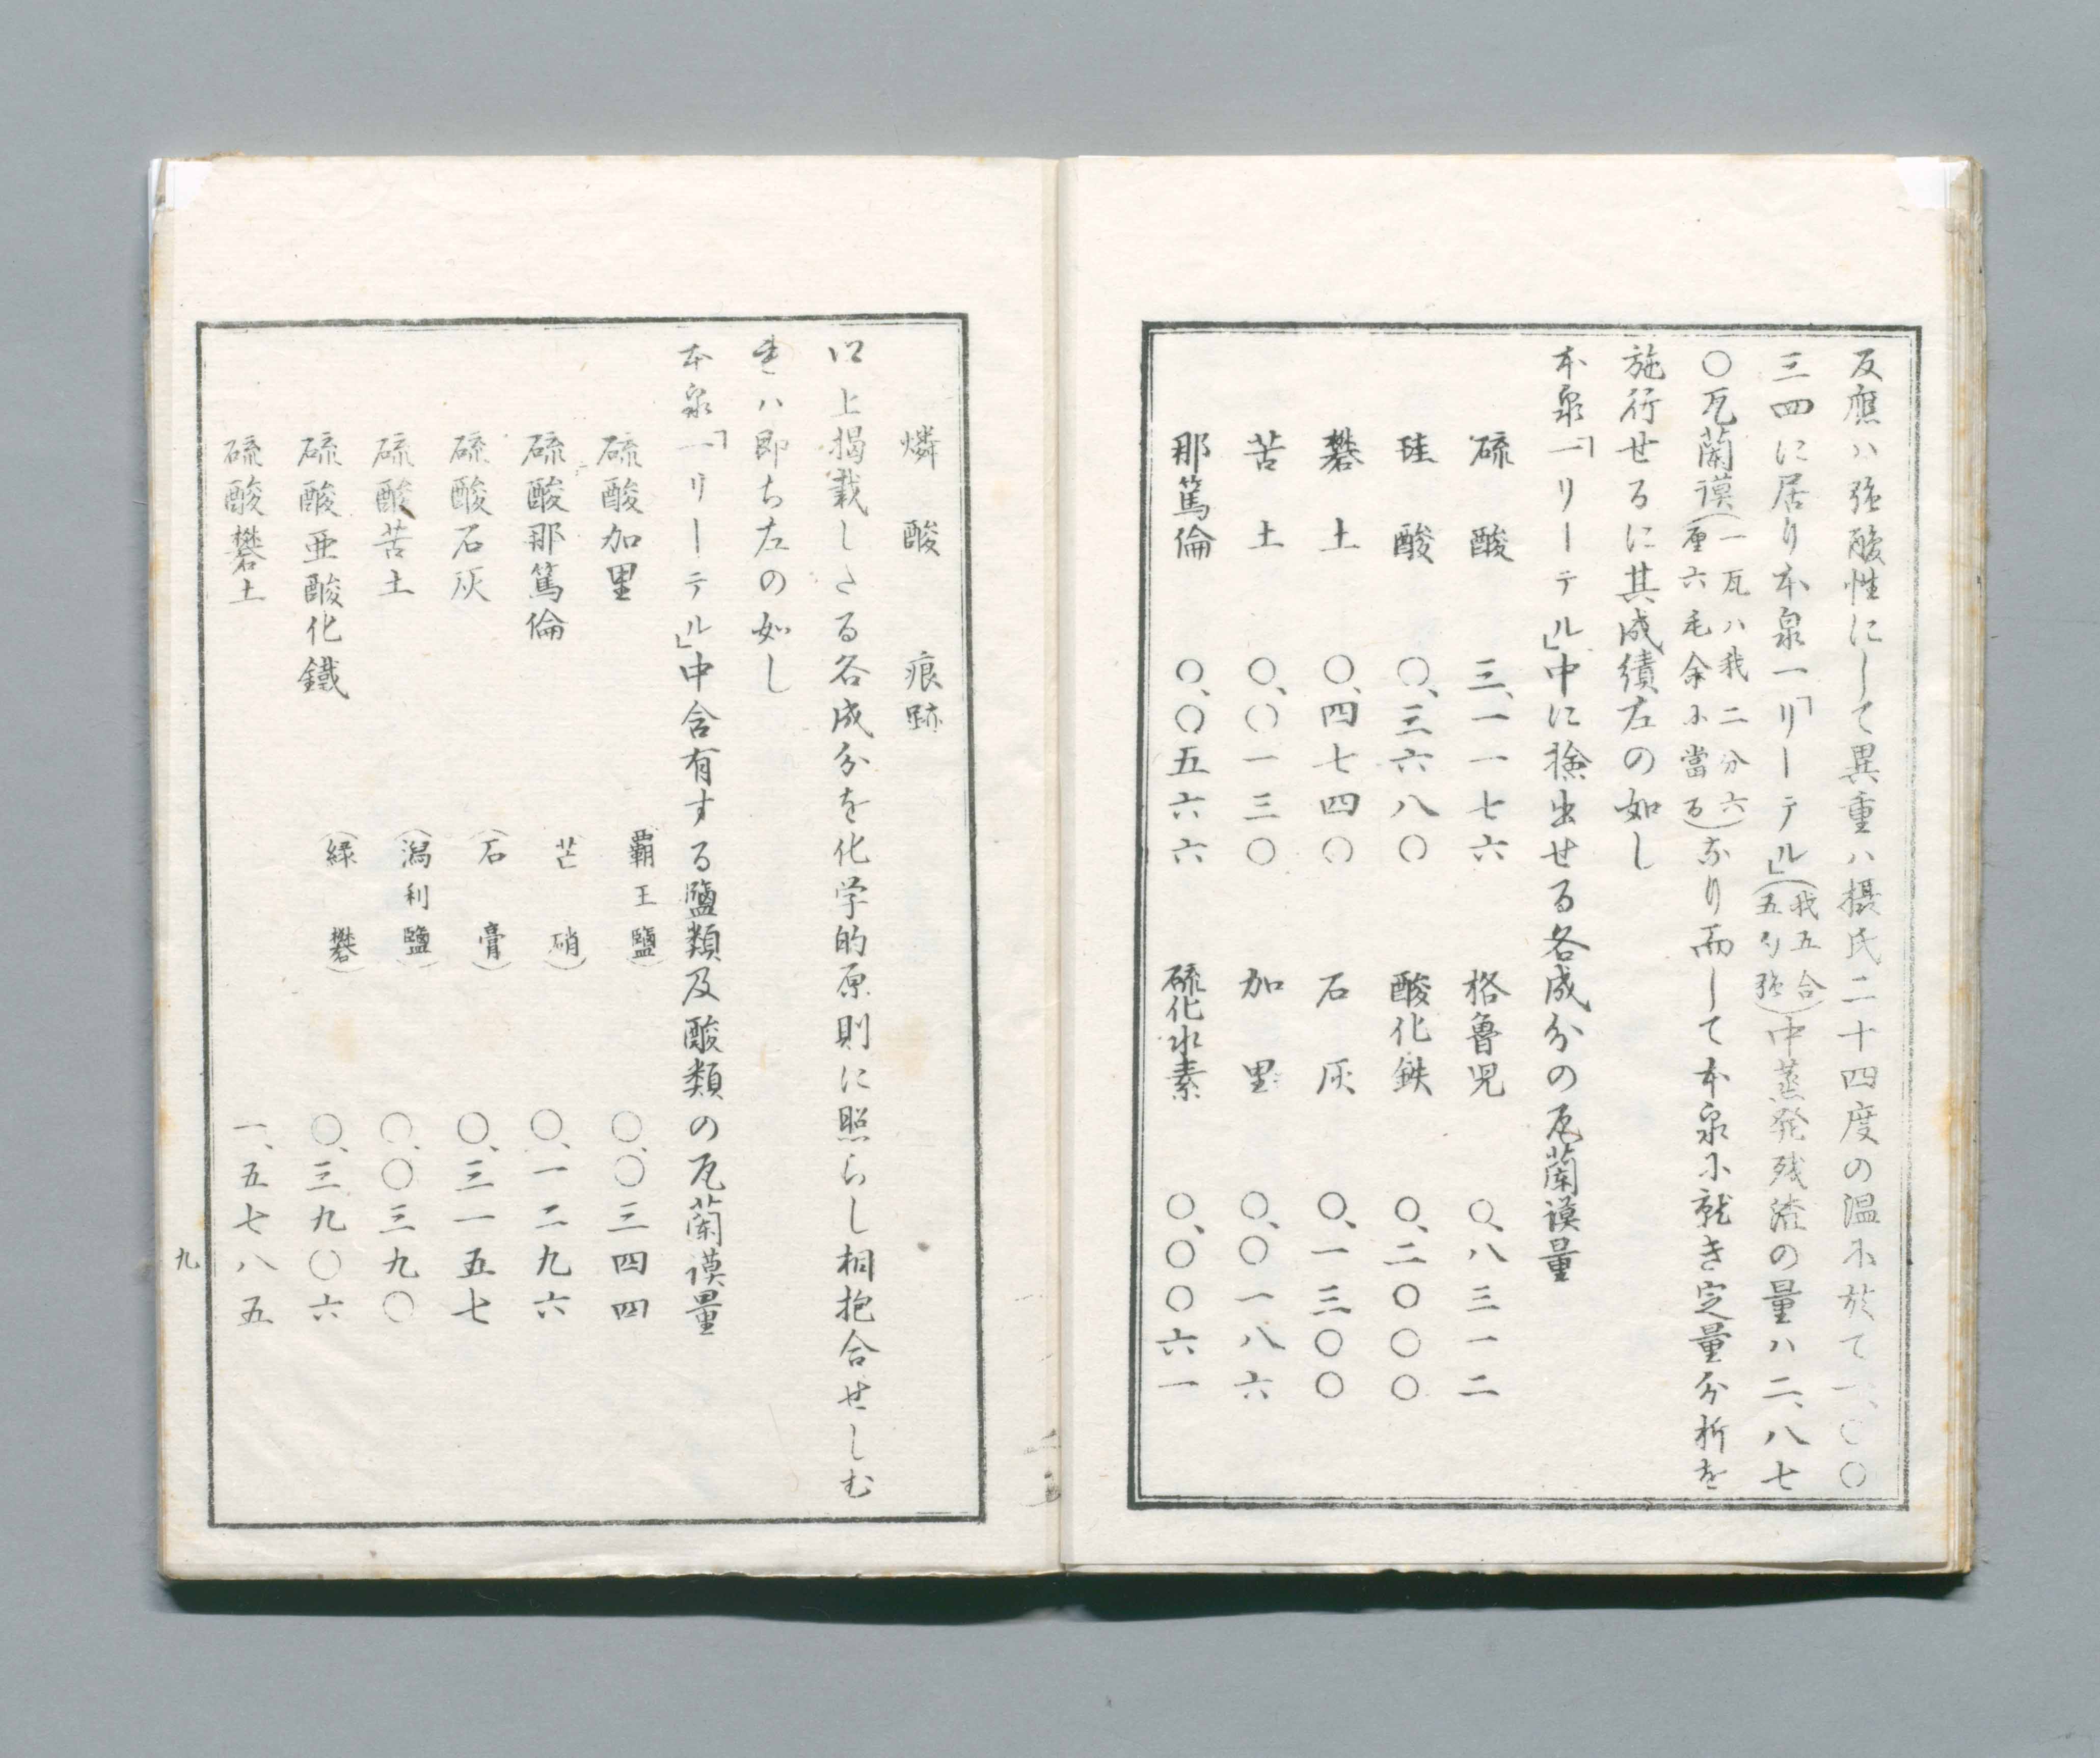 反應ハ强酸性にして異重ハ摂氏二十四度の温に於て一、〇〇
三四に居り本泉一「リーテル」(我五合五勺强)中蒸発残渣の量ハ二、八七
〇瓦蘭謨(一瓦ハ我二分六厘六毛余に當る)なり而して本泉に就き定量分析を
施行せるに其成績左の如し
本泉一「リーテル」中に撿出せる各成分の瓦蘭謨量
硫酸 三、一一七六 格魯児 〇、八三一二
硅酸 〇、三六八〇 酸化鉄 〇、二〇〇〇
礬土 〇、四七四〇 石灰 〇、一三〇〇
苦土 〇、〇一三〇 加里 〇、〇一八六
那篤倫 〇、〇五六六 硫化水素 〇、〇〇六一
燐酸 痕跡
以上掲載したる各成分を化学的原則に照らし相抱合せしむ
きハ即ち左の如し
本泉一「リーテル」中含有する鹽類及酸類の瓦蘭謨量
硫酸加里 (覇王鹽) 〇、〇三四四
硫酸那篤倫 (芒硝) 〇、一二九六
硫酸石灰 (石膏) 〇、三一五七
硫酸苦土 (瀉利鹽) 〇、〇三九〇
硫酸亜酸化鐵 (緑礬) 〇、三九〇六
硫酸礬土 一、五七八五
九